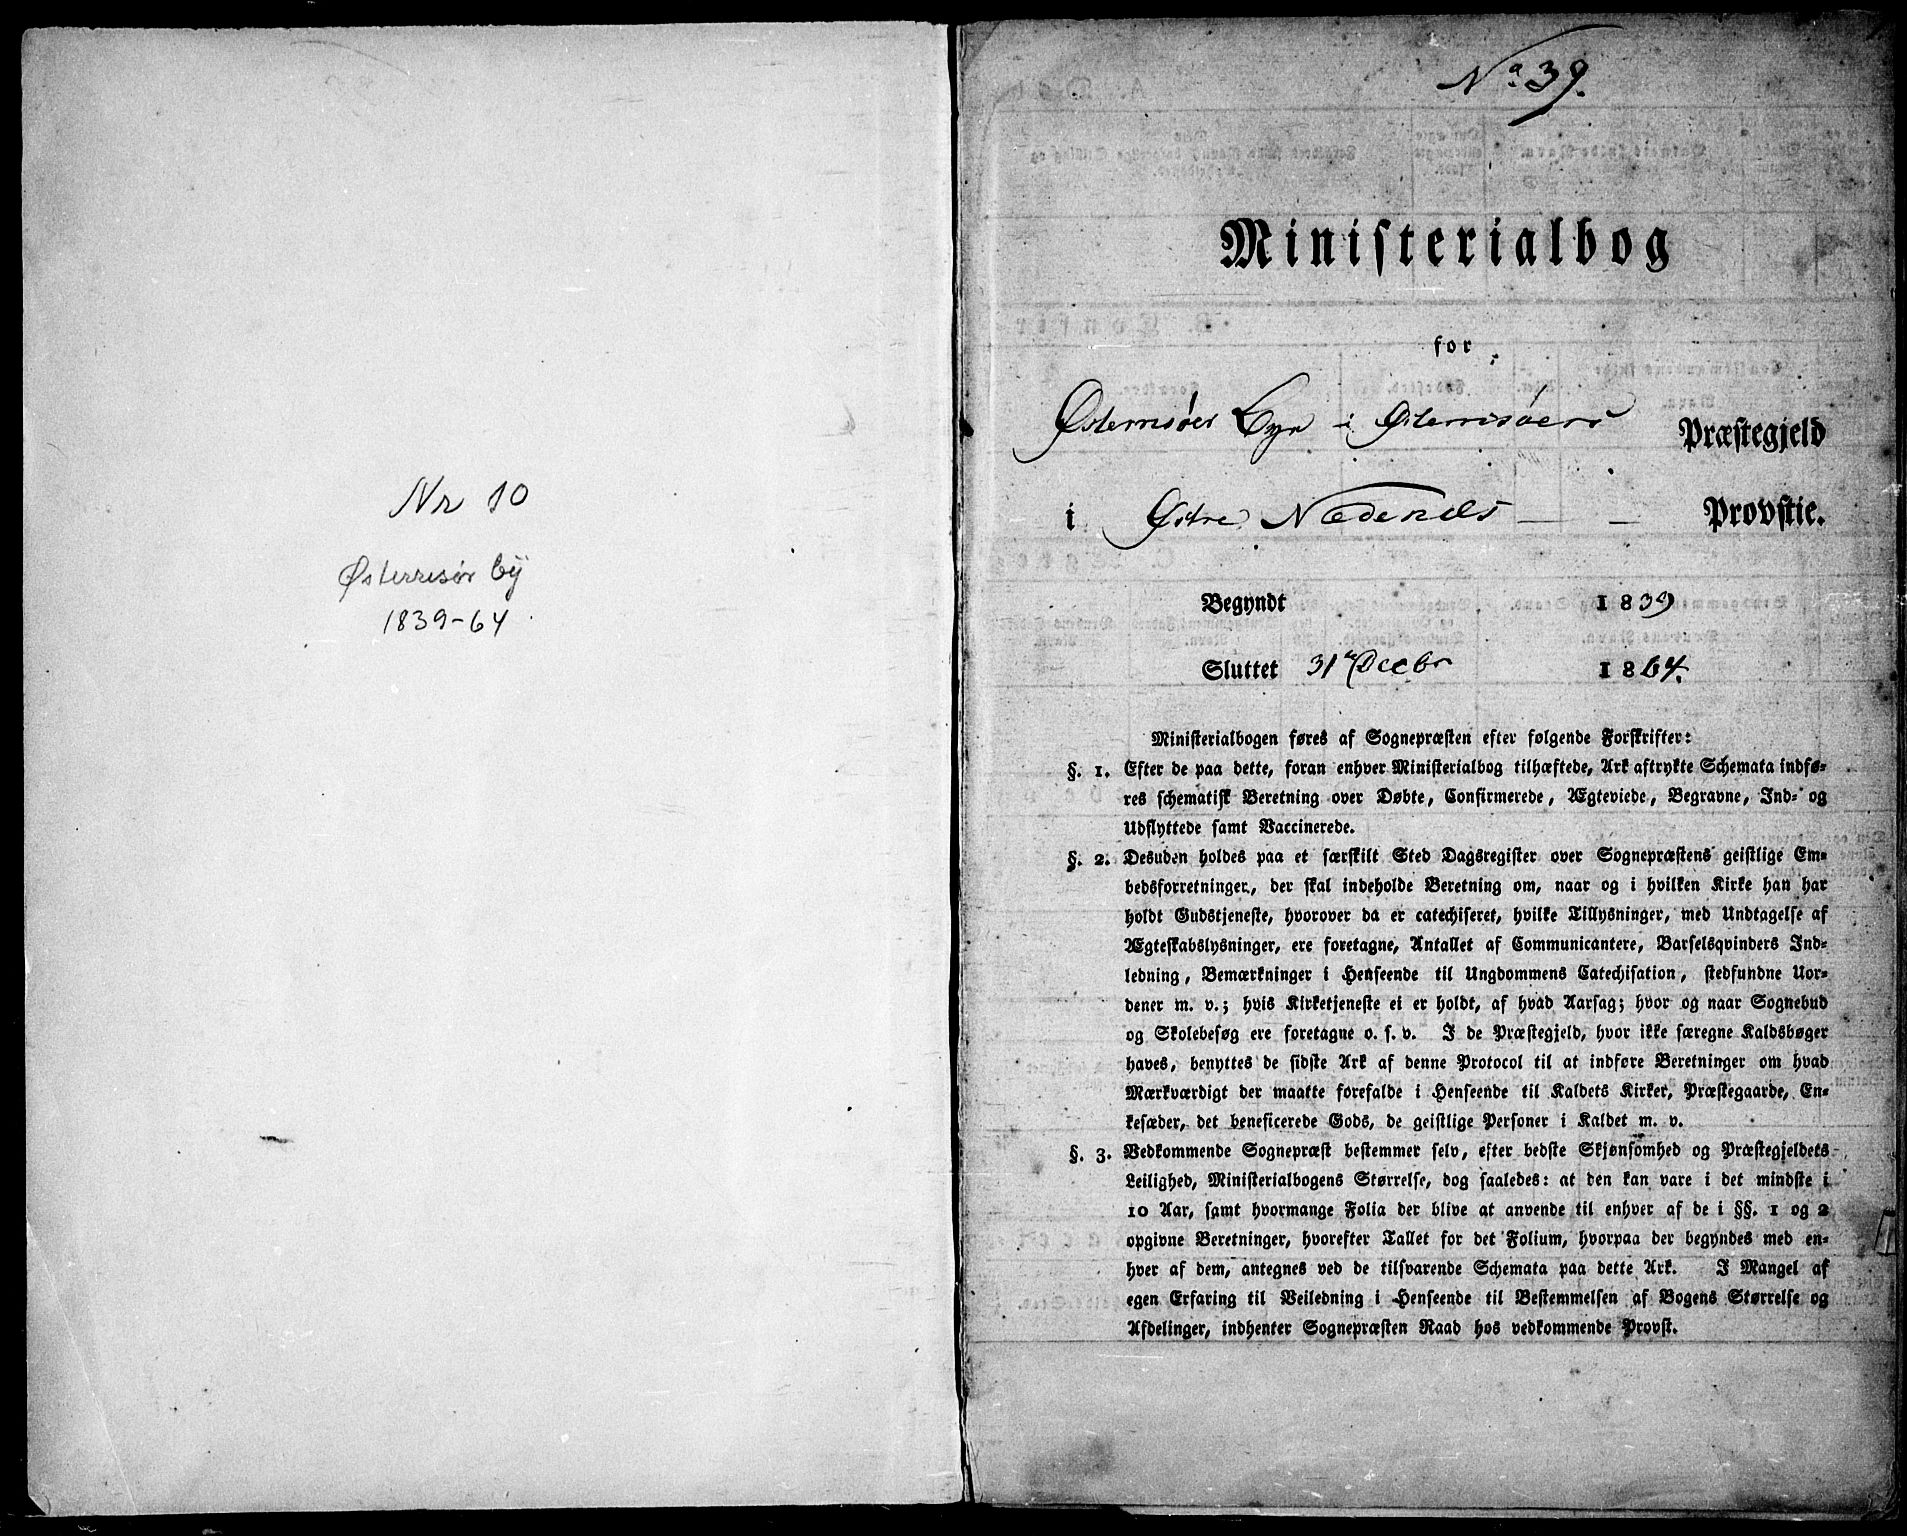 Nr 10
Østerrisør by
1839-64
No 39.
Ministerialbog
for
Østerrisøers Bye i Østerrisøers Præstegjeld
i Østre Nedenæs Provstie.
Begyndt 1839
Sluttet 31te Decbr 1864.
Ministerialbogen føres af Sognepræsten efter følgende Forskrifter:
§. 1. Efter de paa dette, foran enhver Ministerialbog tilhæftede, Ark aftrykte Schemata indfø-
res schematisk Beretning over Døbte, Confirmerede, Ægteviede, Begravne, Ind- og
Udflyttede samt Vaccinerede.
§. 2. Desuden holdes paa et særskilt Sted Dagsregister over Sognepræstens geistlige Em-
bedsforretninger, der skal indeholde Beretning om, naar og i hvilken Kirke han har
holdt Gudstjeneste, hvorover da er catechiseret, hvilke Tillysninger, med Undtagelse af
Ægteskabslysninger, ere foretagne, Antallet af Communicantere, Barselsqvinders Ind-
ledning, Bemærkninger i Henseende til Ungdommens Catechisation, stedfundne Uor-
dener m. v.; hvis Kirketjeneste ei er holdt, af hvad Aarsag; hvor og naar Sognebud
og Skolebesøg ere foretagne o. s. v. I de Præstegjeld, hvor ikke særegne Kaldsbøger
haves, benyttes de sidste Ark af denne Protocol til at indføre Beretninger om hvad
Mærkværdigt der maatte forefalde i Henseende til Kaldets Kirker, Præstegaarde, En-
kesæder, det beneficerede Gods, de geistlige Personer i Kaldet m. v.
§. 3. Vedkommende Sognepræst bestemmer selv, efter bedste Skjønsomhed og Præstegjeldets
Leilighed, Ministerialbogens Størrelse, dog saaledes: at den kan vare i det mindste i
10 Aar, samt hvormange Folia der blive at anvende til enhver af de i §§. 1 og 2
opgivne Beretninger, hvorefter Tallet for det Folium, hvorpaa der begyndes med en-
hver af dem, antegnes ved de tilsvarende Schemata paa dette Ark. I Mangel af
egen Erfaring til Veiledning i Henseende til Bestemmelsen af Bogens Størrelse og
Afdelinger, indhenter Sognepræsten Raad hos vedkommende Provst.